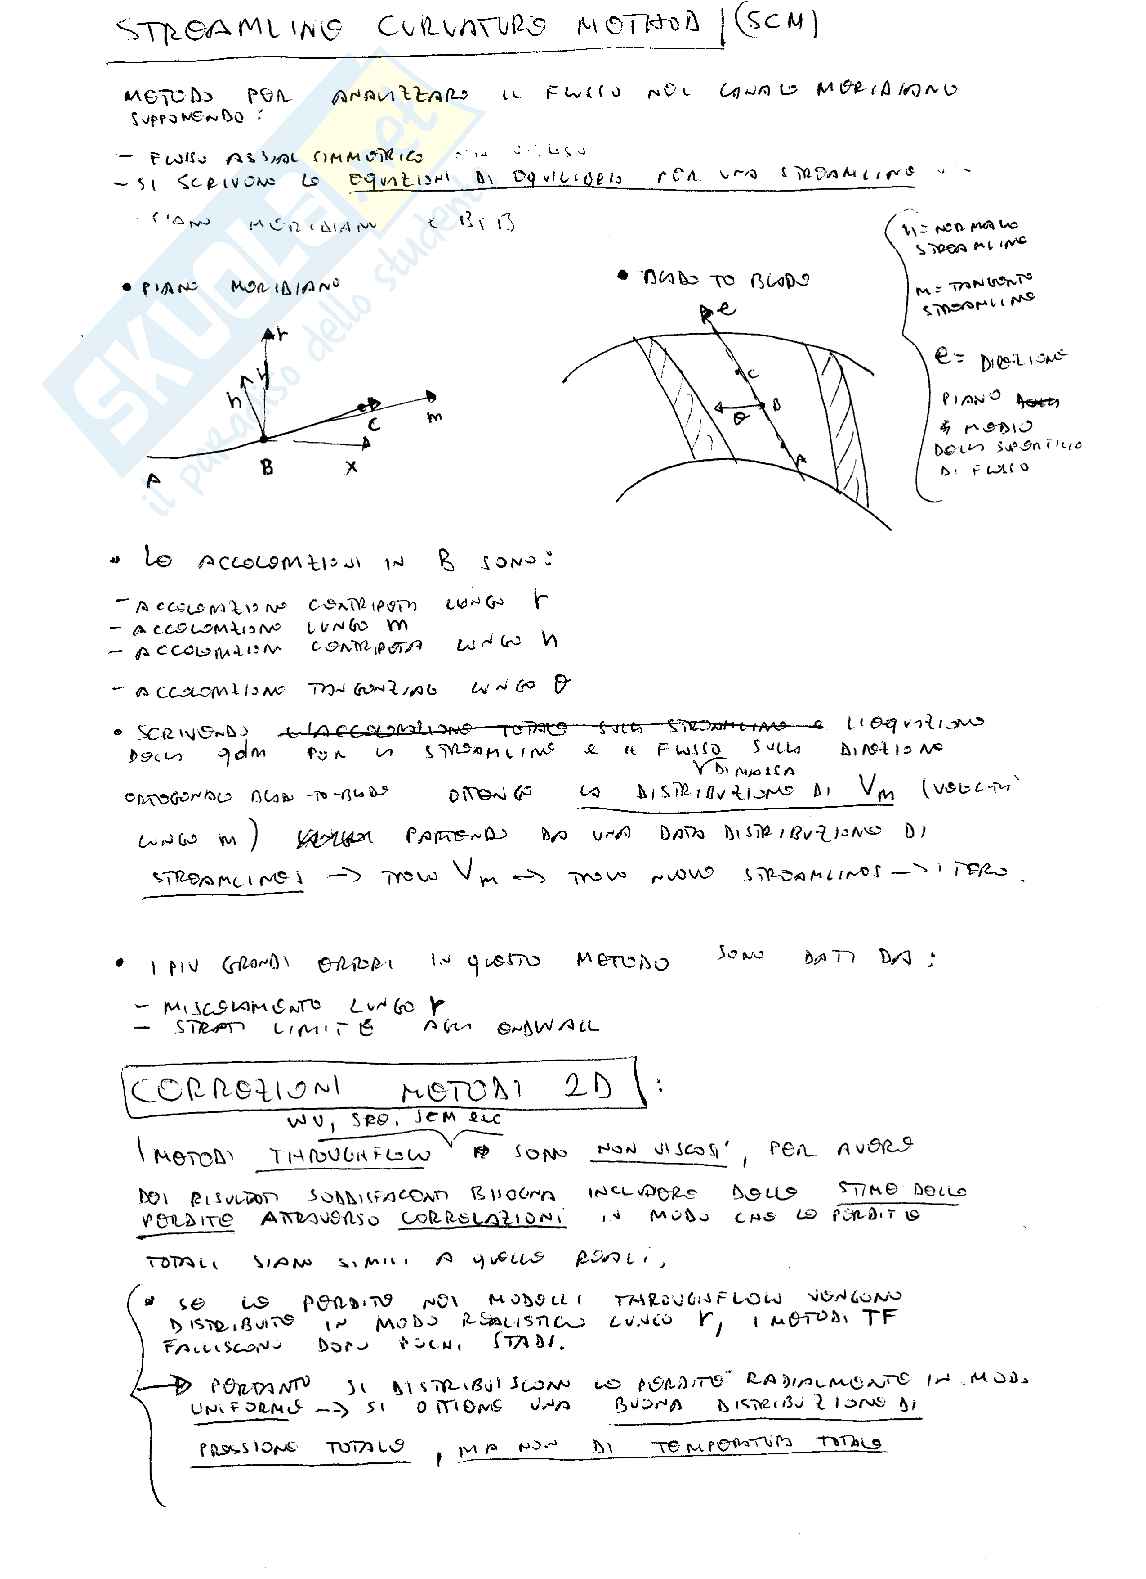 STREAMLINE CURVATURE METHOD (SCM)
METODO PER ANALIZZARE IL FLUSSO NEL CANALE MERIDIANO
SUPPONENDO:
- FLUSSO ASSIALSIMMETRICO
- SI SCRIVONO LE EQUAZIONI DI EQUILIBRIO PER UNA STREAMLINE
PIANO MERIDIANO E B2B
• PIANO MERIDIANO
r
n
C
m
B
x
A
• BLADE TO BLADE
e
C
θ
B
A
n = NORMALE
STREAMLINE
m = TANGENTE
STREAMLINE
e = DIREZIONE
PIANO
MEDIO
DELLA SUPERFICIE
DI FLUSSO
• LE ACCELERAZIONI IN B SONO:
- ACCELERAZIONE CENTRIPETA LUNGO r
- ACCELERAZIONE LUNGO m
- ACCELERAZIONE CENTRIPETA LUNGO n
- ACCELERAZIONE TANGENZIALE LUNGO θ
• SCRIVENDO L'ACCELERAZIONE TOTALE SULLA STREAMLINE E L'EQUAZIONE
DELLA qdm PER LA STREAMLINE E IL FLUSSO SULLA DIREZIONE
DI MASSA
ORTOGONALE BLADE-TO-BLADE OTTENGO LA DISTRIBUZIONE DI Vm (VELOCITÀ
LUNGO m) PARTENDO DA UNA DATA DISTRIBUZIONE DI
STREAMLINES → TROVO Vm → TROVO NUOVE STREAMLINES → ITERO.
• I PIÙ GRANDI ERRORI IN QUESTO METODO SONO DATI DA:
- MISCELAMENTO LUNGO r
- STRATI LIMITE AGLI ENDWALL
CORREZIONI METODI 2D:
WU, SRE, SCM etc
I METODI THROUGHFLOW SONO NON VISCOSI, PER AVERE
DEI RISULTATI SODDISFACENTI BISOGNA INCLUDERE DELLE STIME DELLE
PERDITE ATTRAVERSO CORRELAZIONI IN MODO CHE LE PERDITE
TOTALI SIANO SIMILI A QUELLE REALI,
• SE LE PERDITE NEI MODELLI THROUGHFLOW VENGONO
DISTRIBUITE IN MODO REALISTICO LUNGO r, I METODI TF
FALLISCONO DOPO POCHI STADI.
→ PERTANTO SI DISTRIBUISCONO LE PERDITE RADIALMENTE IN MODO
UNIFORME → SI OTTIENE UNA BUONA DISTRIBUZIONE DI
PRESSIONE TOTALE, MA NON DI TEMPERATURA TOTALE
SKUOLA.net
il paradiso dello studente